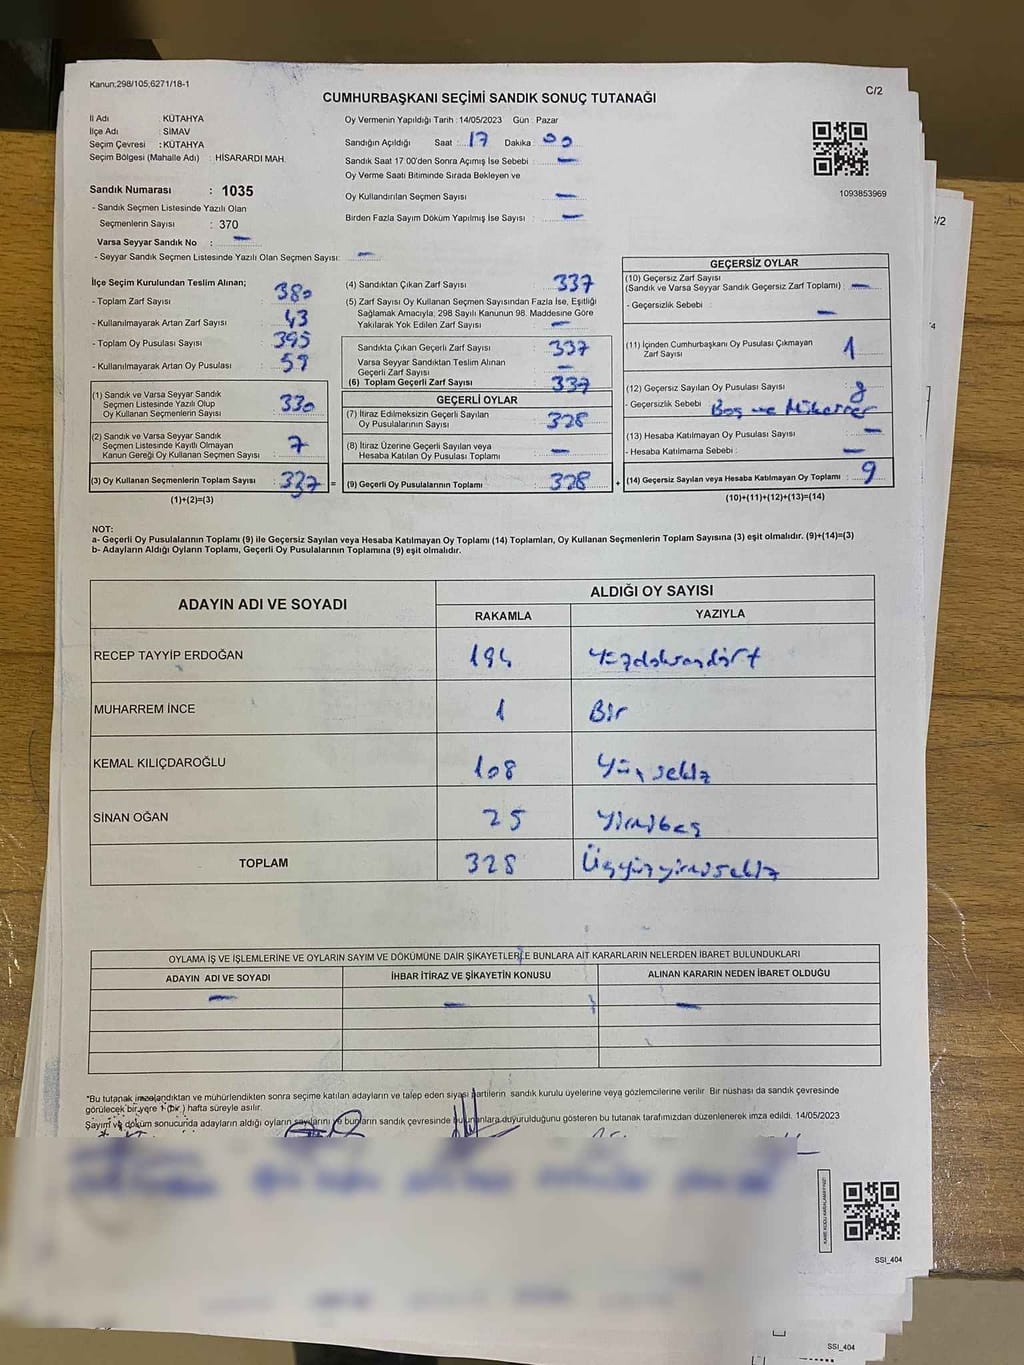 Kanun;298/105,6271/18-1
C/2
CUMHURBAŞKANI SEÇİMİ SANDIK SONUÇ TUTANAĞI
İl Adı : KÜTAHYA
İlçe Adı : SİMAV
Seçim Çevresi : KÜTAHYA
Seçim Bölgesi (Mahalle Adı) : HİSARARDI MAH.
Sandık Numarası : 1035
- Sandık Seçmen Listesinde Yazılı Olan
Seçmenlerin Sayısı : 370
Varsa Seyyar Sandık No : —
- Seyyar Sandık Seçmen Listesinde Yazılı Olan Seçmen Sayısı: —
Oy Vermenin Yapıldığı Tarih : 14/05/2023 Gün : Pazar
Sandığın Açıldığı Saat : 17 Dakika : 00
Sandık Saat 17:00'den Sonra Açımış İse Sebebi : —
Oy Verme Saati Bitiminde Sırada Bekleyen ve
Oy Kullandırılan Seçmen Sayısı : —
Birden Fazla Sayım Döküm Yapılmış İse Sayısı : —
1093853969
İlçe Seçim Kurulundan Teslim Alınan;
- Toplam Zarf Sayısı : 380
- Kullanılmayarak Artan Zarf Sayısı : 43
- Toplam Oy Pusulası Sayısı : 395
- Kullanılmayarak Artan Oy Pusulası : 59
(1) Sandık ve Varsa Seyyar Sandık
Seçmen Listesinde Yazılı Olup
Oy Kullanan Seçmenlerin Sayısı : 330
(2) Sandık ve Varsa Seyyar Sandık
Seçmen Listesinde Kayıtlı Olmayan
Kanun Gereği Oy Kullanan Seçmen Sayısı : 7
(3) Oy Kullanan Seçmenlerin Toplam Sayısı : 337 =
(1)+(2)=(3)
(4) Sandıktan Çıkan Zarf Sayısı : 337
(5) Zarf Sayısı Oy Kullanan Seçmen Sayısından Fazla İse, Eşitliği
Sağlamak Amacıyla, 298 Sayılı Kanunun 98. Maddesine Göre
Yakılarak Yok Edilen Zarf Sayısı : —
Sandıkta Çıkan Geçerli Zarf Sayısı : 337
Varsa Seyyar Sandıktan Teslim Alınan
Geçerli Zarf Sayısı : —
(6) Toplam Geçerli Zarf Sayısı : 337
GEÇERLİ OYLAR
(7) İtiraz Edilmeksizin Geçerli Sayılan
Oy Pusulalarının Sayısı : 328
(8) İtiraz Üzerine Geçerli Sayılan veya
Hesaba Katılan Oy Pusulası Toplamı : —
(9) Geçerli Oy Pusulalarının Toplamı : 328 +
GEÇERSİZ OYLAR
(10) Geçersiz Zarf Sayısı
(Sandık ve Varsa Seyyar Sandık Geçersiz Zarf Toplamı) : —
- Geçersizlik Sebebi : —
(11) İçinden Cumhurbaşkanı Oy Pusulası Çıkmayan
Zarf Sayısı : 1
(12) Geçersiz Sayılan Oy Pusulası Sayısı : 8
- Geçersizlik Sebebi : Boş ve Mükerrer
(13) Hesaba Katılmayan Oy Pusulası Sayısı : —
- Hesaba Katılmama Sebebi : —
(14) Geçersiz Sayılan veya Hesaba Katılmayan Oy Toplamı : 9
(10)+(11)+(12)+(13)=(14)
NOT:
a- Geçerli Oy Pusulalarının Toplamı (9) ile Geçersiz Sayılan veya Hesaba Katılmayan Oy Toplamı (14) Toplamları, Oy Kullanan Seçmenlerin Toplam Sayısına (3) eşit olmalıdır. (9)+(14)=(3)
b- Adayların Aldığı Oyların Toplamı, Geçerli Oy Pusulalarının Toplamına (9) eşit olmalıdır.
ADAYIN ADI VE SOYADI ALDIĞI OY SAYISI
RAKAMLA YAZIYLA
RECEP TAYYİP ERDOĞAN 194 Yüzdoksandört
MUHARREM İNCE 1 Bir
KEMAL KILIÇDAROĞLU 108 Yüzsekiz
SİNAN OĞAN 25 Yirmibeş
TOPLAM 328 Üçyüzyirmisekiz
OYLAMA İŞ VE İŞLEMLERİNE VE OYLARIN SAYIM VE DÖKÜMÜNE DAİR ŞİKAYETLERLE BUNLARA AİT KARARLARIN NELERDEN İBARET BULUNDUKLARI
ADAYIN ADI VE SOYADI İHBAR İTİRAZ VE ŞİKAYETİN KONUSU ALINAN KARARIN NEDEN İBARET OLDUĞU
— — —
*Bu tutanak imzalandıktan ve mühürlendikten sonra seçime katılan adayların ve talep eden siyasi partilerin sandık kurulu üyelerine veya gözlemcilerine verilir. Bir nüshası da sandık çevresinde
görülecek bir yere 1 (bir) hafta süreyle asılır.
Sayım ve döküm sonucunda adayların aldığı oyların sayılarını ve bunların sandık çevresinde bulunanlara duyurulduğunu gösteren bu tutanak tarafımızdan düzenlenerek imza edildi. 14/05/2023
SSI_404
SSI_404